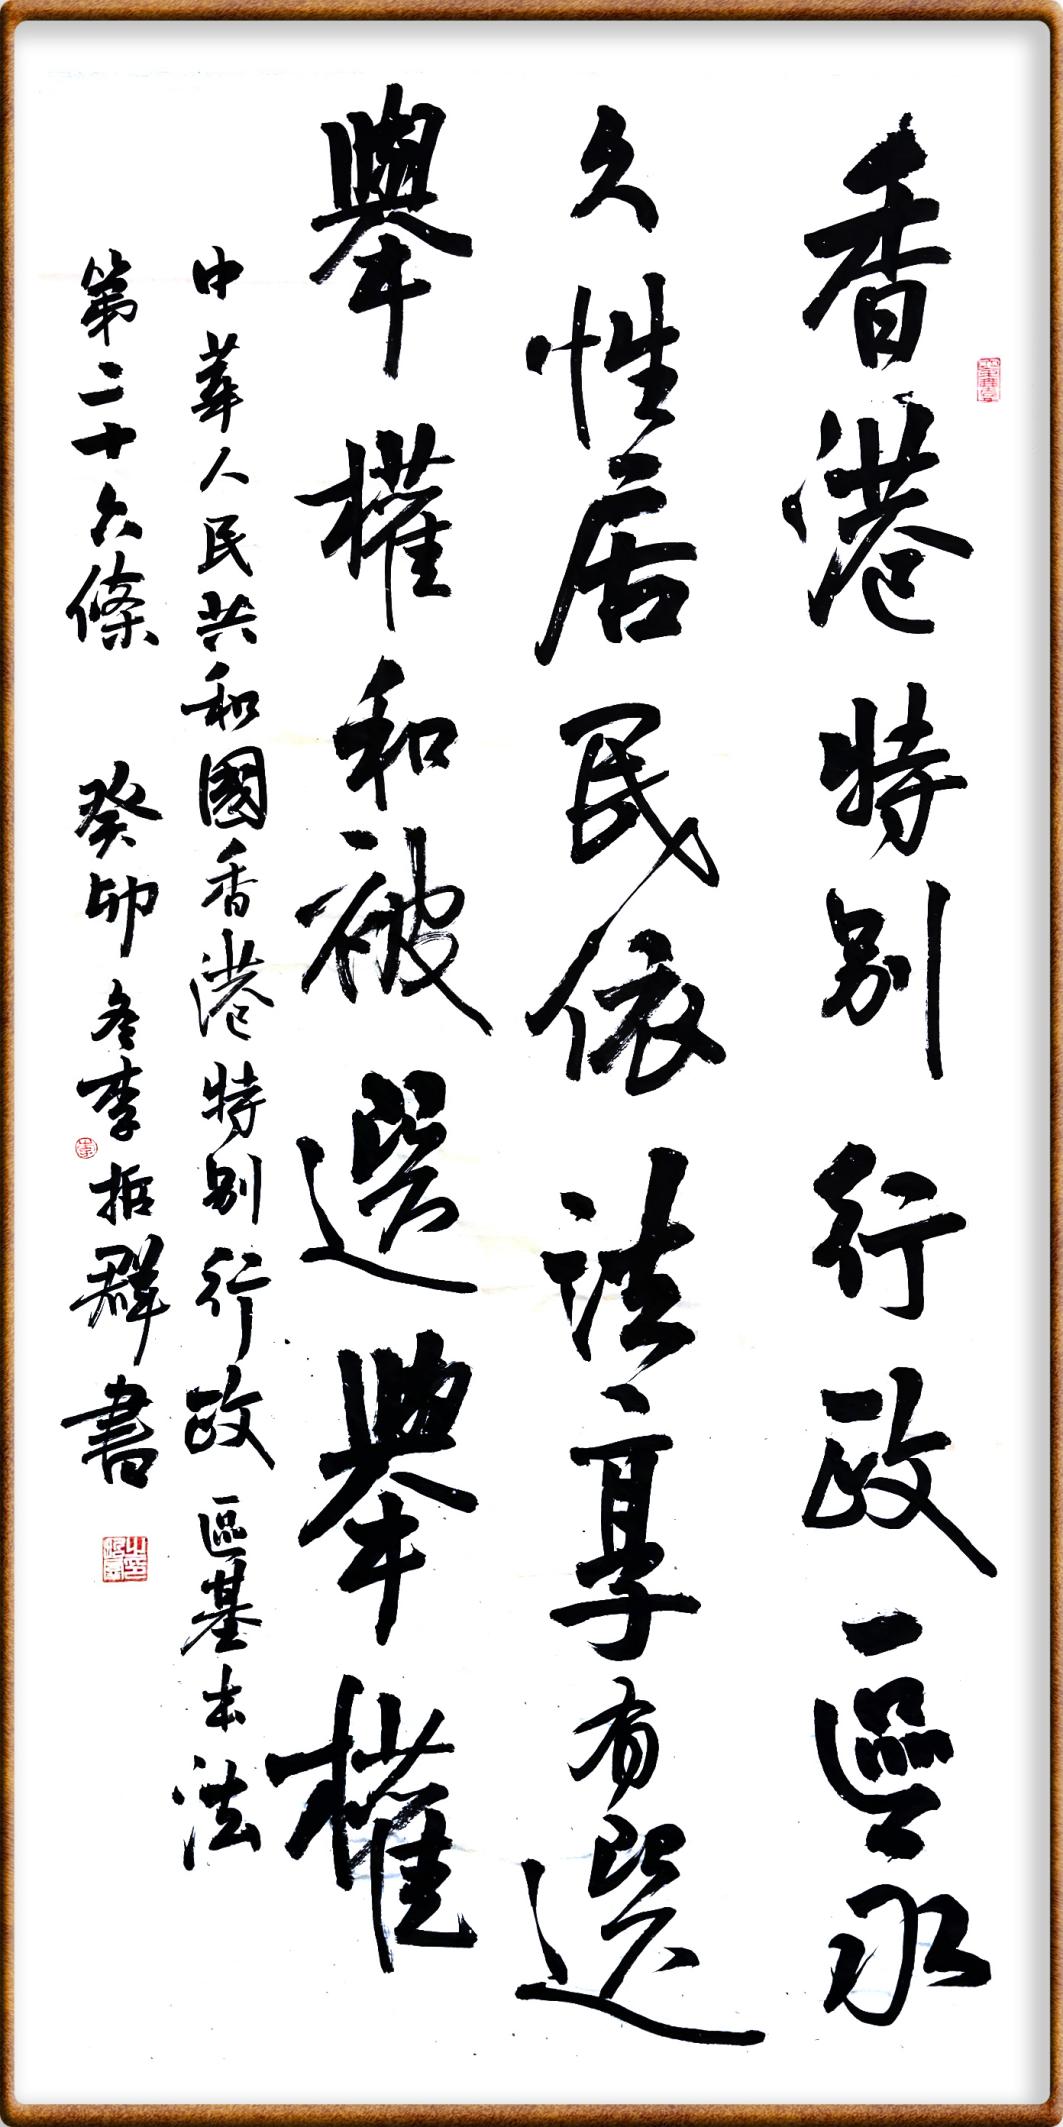 香港特别行政區永
久性居民依法享有選
舉權和被選舉權
中華人民共和國香港特别行政區基本法
第二十六條 癸卯冬李哲群書